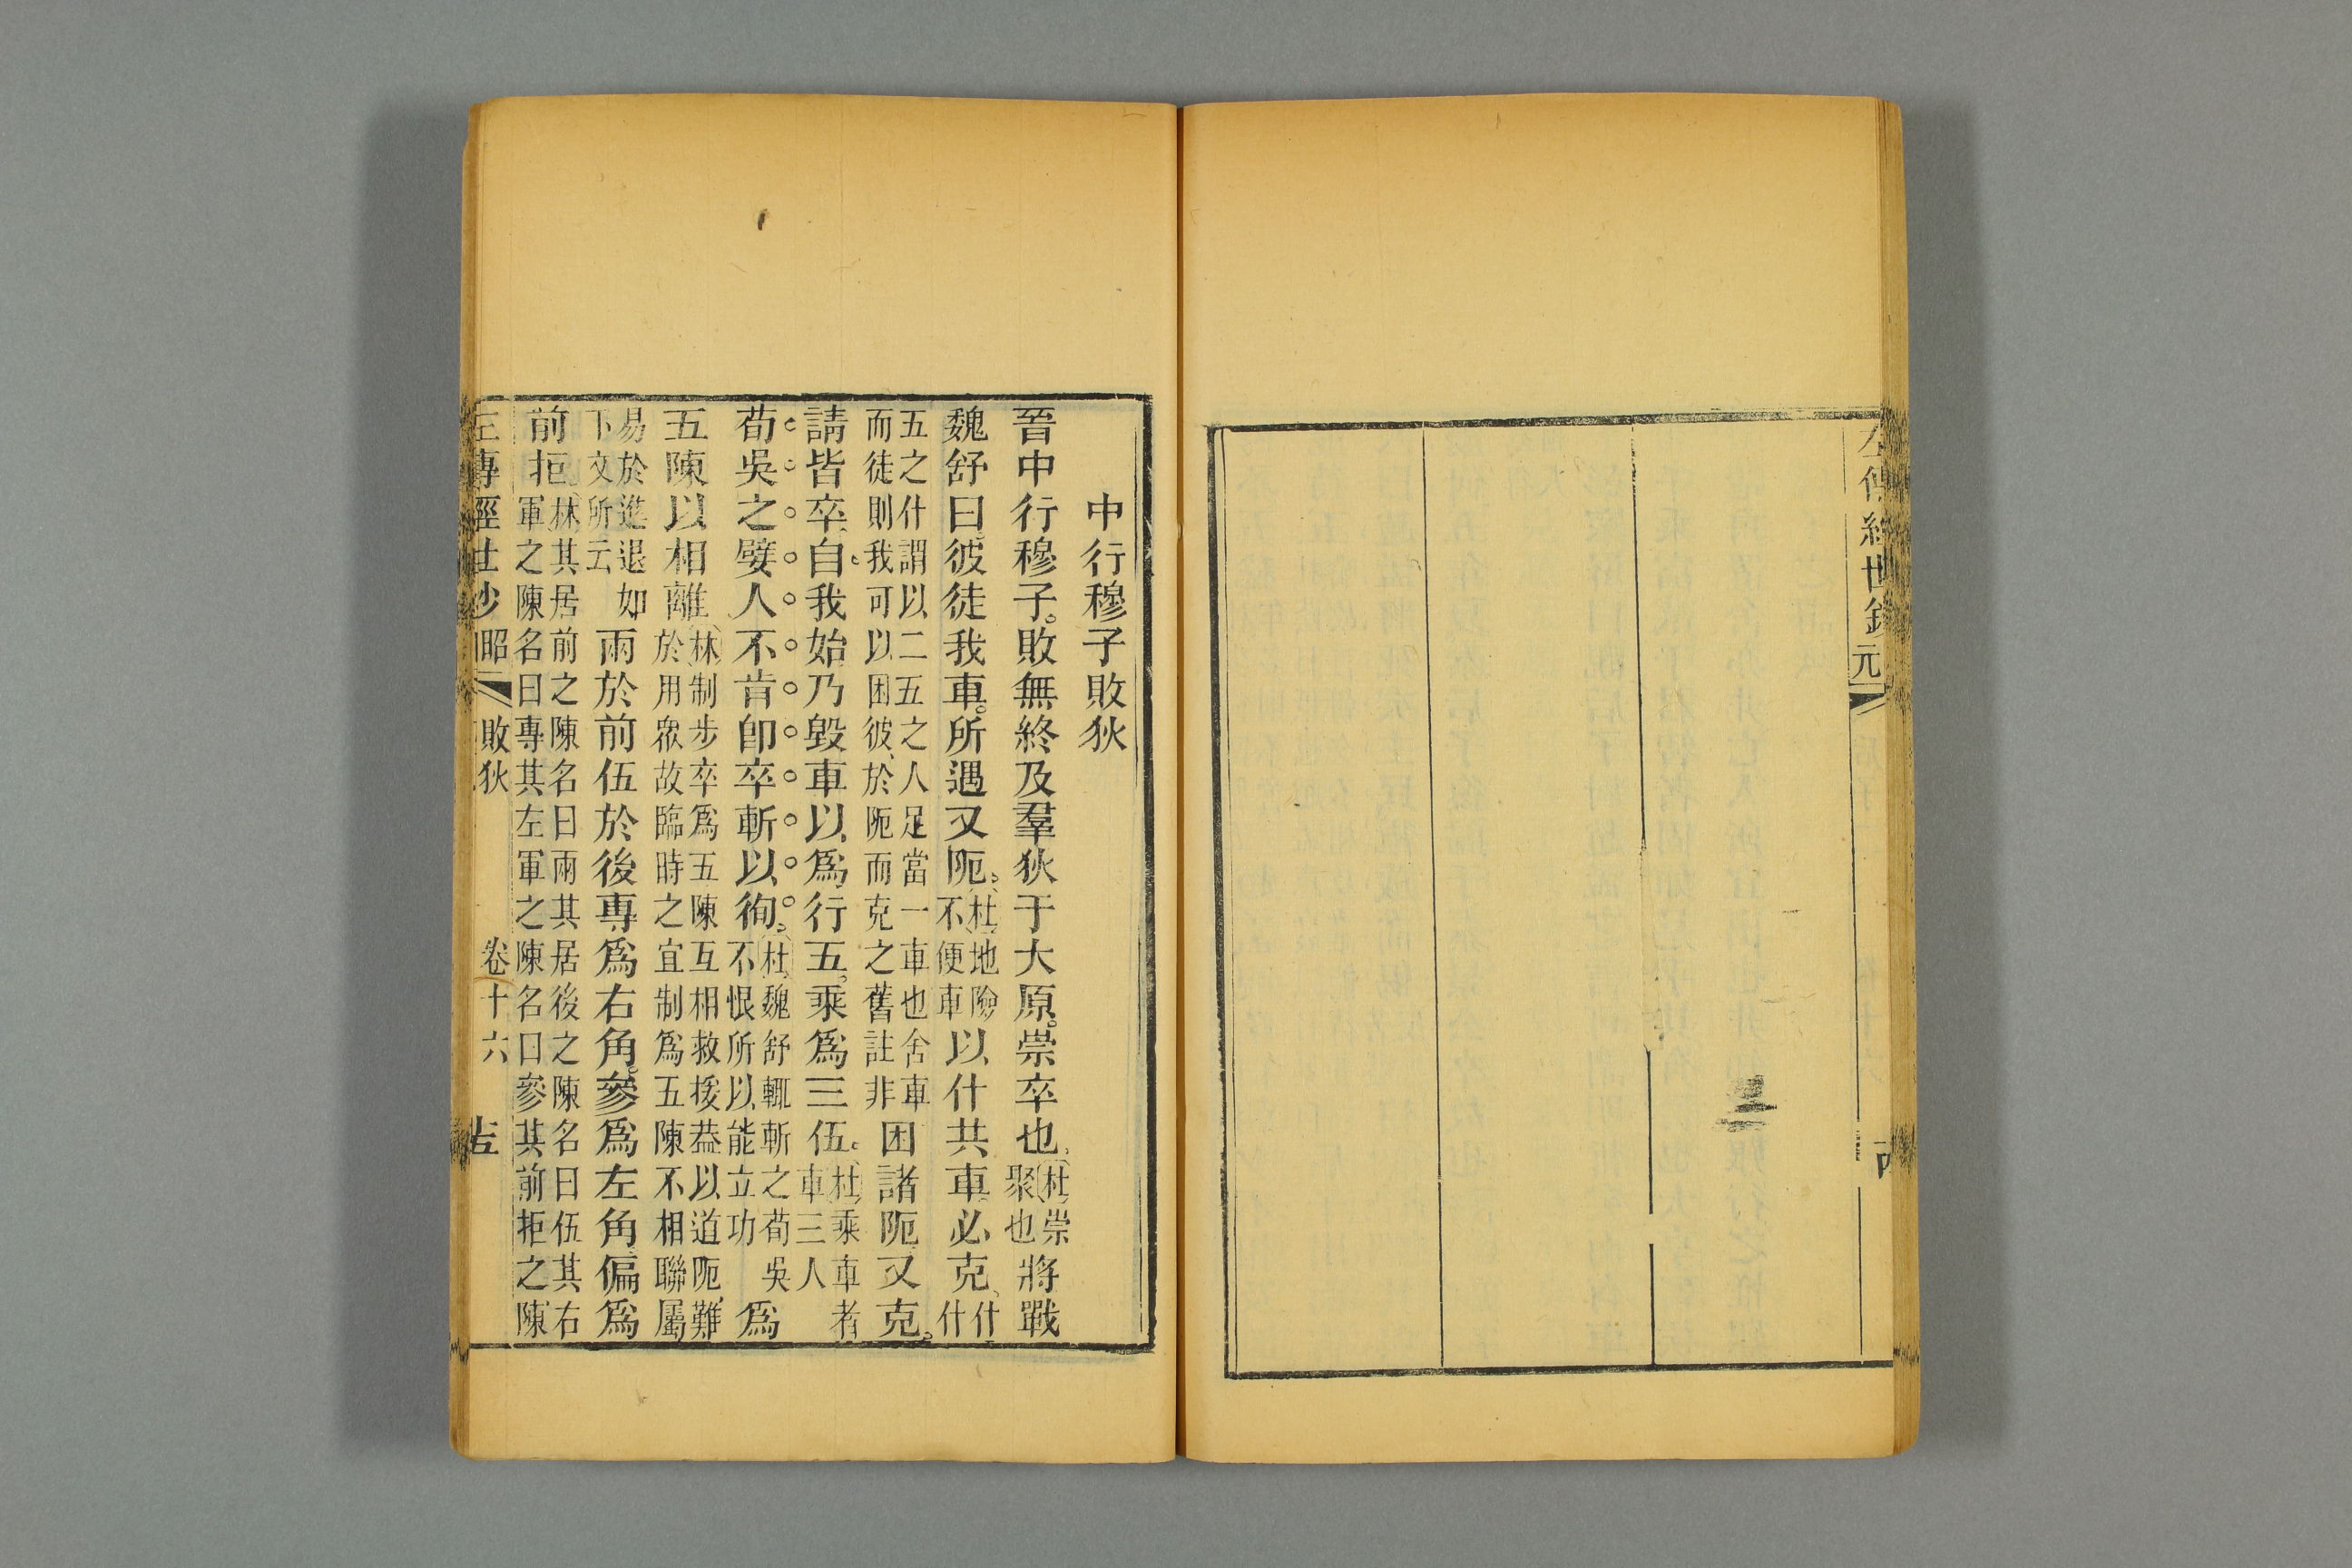 左傳經世鈔
元
中行穆子敗狄
晉中行穆子。敗無終及羣狄于大原。崇卒也。杜崇聚也將戰
魏舒曰。彼徒我車。所遇又阨。杜地險不便車以什共車。必克。什什
五之什謂以二五之人足當一車也舍車而徒則我可以困彼、於阨而克之舊註非困諸阨。又克。
請皆卒。自我始。乃毀車以爲行。五乘爲三伍。杜乘車者車三人
荀吳之嬖人不肯卽卒。斬以徇。杜魏舒輒斬之荀吳不恨所以能立功爲
五陳以相離林制步卒爲五陳互相救援葢以道阨難於用衆故臨時之宜制爲五陳不相聯屬
易於進退如下文所云兩於前伍於後專爲右角。參爲左角偏爲
前拒。林其居前之陳名曰兩其居後之陳名曰伍其右軍之陳名曰專其左軍之陳名曰參其前拒之陳
左傳經世鈔
昭
敗狄
卷十六